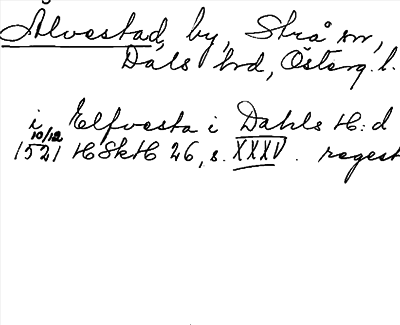 Alvestad, by, Strå sn,
Dals hd, Österg. l.
i Elfvesta i Dahls H:d
10/12
1521 HSkH 26, s. XXXV. regest